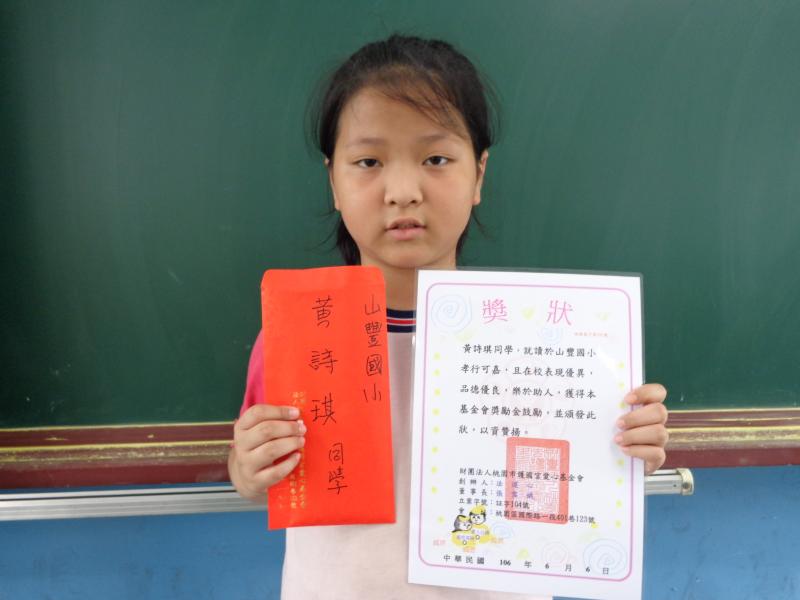 山豐國小
黃詩琪同學
獎狀
黃詩琪同學,就讀於山豐國小
孝行可嘉,且在校表現優異,
品德優良,樂於助人,獲得本
基金會獎勵金鼓勵,並頒發此
狀,以資贊揚。
財團法人桃園市護國宮愛心基金會
創辦人:法
董事長:張
立案字號:註字104號
會 :桃園區國際路一段491巷123號
中華民國 106 年 6 月 6 日